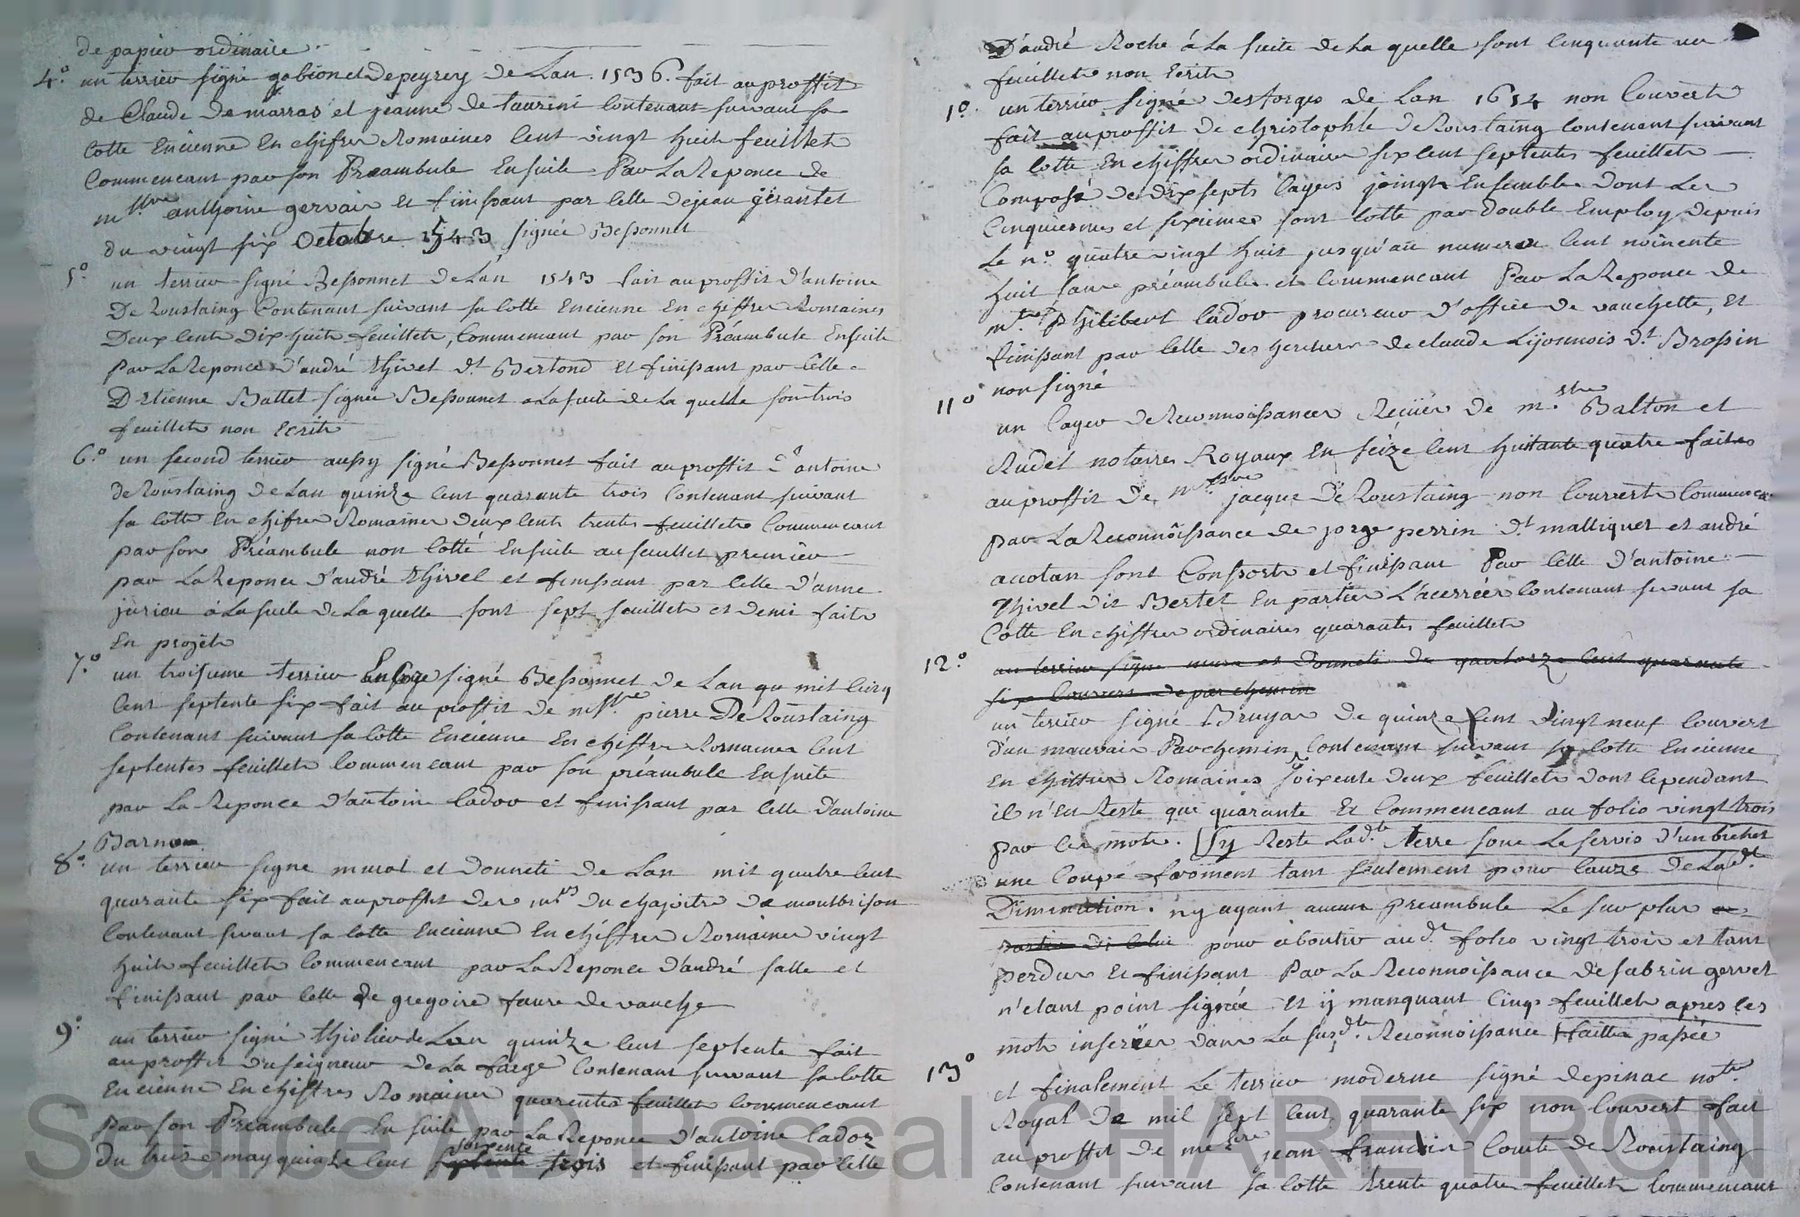 de papier ordinaire
4° un terrier signé gabionel depeyrey de Lan 1536. fait au proffit
de Claude de marras et jeanne de laurent contenant suivant sa
Cotte Encienne En chifres Romaines Cent vingt huit feuillets
Commencant par son Préambule Ensuite Par La Reponce de
mtre anthoine gervais et finissant par celle de jean
du vingt six Octobre 1543 signée Bessonnet
5° un terrier signé Bessonnet de Lan 1543 fait au proffit d'antoine
De Roustaing Contenant suivant sa cotte Encienne En chiffres Romaines
Deux Cent Dix huit feuillets, Commencant par son Préambule Ensuite
Par La Reponce d'andré thivel dt Bertond et finissant par Celle
D'Etienne Battet signée Bessonnet a La suite de La quelle sont trois
feuillets non Ecrits
6° un second terrier aussy signé Bessonnet fait au proffit d'antoine
de Roustaing de Lan quinze Cent quarante trois Contenant suivant
sa cotte En chifres Romaines deux Cents trentes feuillets Commencant
par son Préambule non Cotté Ensuite au feuillet premier
par La Reponce d'andré thivel et finissant par Celle d'anne
juriou à La suite de La quelle sont sept feuillets et demi faits
En projets
7° un troisieme terrier Encore signé Bessonnet de Lan qu mil Cinq
Cent septente six fait au proffit de mestre pierre De Roustaing
Contenant suivant sa Cotte Encienne En chiffres Romaines Cent
septentes feuillets Commencant par son préambule Ensuite
par La Reponce d'antoine Cador et finissant par Celle d'antoine
Barnou
8° un terrier signe murat et Donneti de Lan mil quatre Cent
quarante six fait au proffit des mrs du chapitre de montbrison
Contenant suivant sa Cotte Encienne En chiffres Romaines vingt
huit feuillets Commencant par La Reponce d'andré salle et
finissant par Celle de gregoire faure de vauche
9° un terrier signé thiolier de Lan quinze Cent septente fait
au proffit du seigneur de La farge Contenant suivant sa Cotte
Encienne En chiffres Romaines quarentes feuillets Commencant
Par son Préambule En suite par La Reponce d'antoine Cador
soixante
du treize may quinze Cent septente trois et finissant par Celle
D'andré Roche à La suite de La quelle sont Cinquante un
feuillets non Ecrits
1°. un terrier signé Desforges de Lan 1614 non Couvert
fait au proffit de christophle de Roustaing Contenant suivant
sa Cotte En chiffres ordinaires six Cent septentes feuillets
Composé de dix septs Cayers joingts Ensemble dont Les
Cinquiesmes et sixiemes sont Cotte par double Employ depuis
Le n° quatre vingt huit jusqu'au numero Cent
huit sans préambule et commencant Par La Reponce de
mtre Philibert Cador procureur d'office de vauchette, et
finissant par Celle des heritiers de claude Lijonnois dt Brossin
non signé
11° un Cayer de Reconnoissances Reçües de mrs stre Balton et
Rudet notaires Royaux En seize Cent huitante quatre faites
au proffit de messire jacque de Roustaing non Couverts Commencant
par La Reconnoissance de jorge perrin dt malliquet et andré
accotan sont Consorts et finissant Par Celle d'antoine
Thivel dit Bertet En partie Lacerrées Contenant suivant sa
Cotte En chiffres ordinaires quarantes feuillets
12° un terrier signe mura et Donneti de quatorze Cent quarante
six Couvert de parchemin
un terrier signé Bruyas de quinze Cent vingt neuf Couvert
d'un mauvais Parchemin Contenant suivant sa Cotte Encienne
En chiffres Romaines soixente deux feuillets dont Cependant
il n'En Reste que quarante Et Commencant au folio vingt trois
par Ces mots. Sy Reste Lad.te terre sous Le servis d'un bichet
une Coupe froment tant seulement pour Cause de Lad.te
Diminution. n'y ayant aucun Preambule Le surplus
partie di Celui pour aboutir aud.t folio vingt trois et tant
perdus et finissant Par La Reconnoissance de sabrin gervet
n'etant point signée Et y manquant Cinq feuillets apres Ces
mots inserées dans La susd.te Reconnoissance faitte passée
13° et finalement Le terrier moderne signé depinac not.re
Royal de mil sept Cent quarante six non Couvert fait
au proffit de messire jean francois Comte de Roustaing
Contenant suivant sa Cotte trente quatre feuillets Commencant
Source AD Pascal CHAREYRON